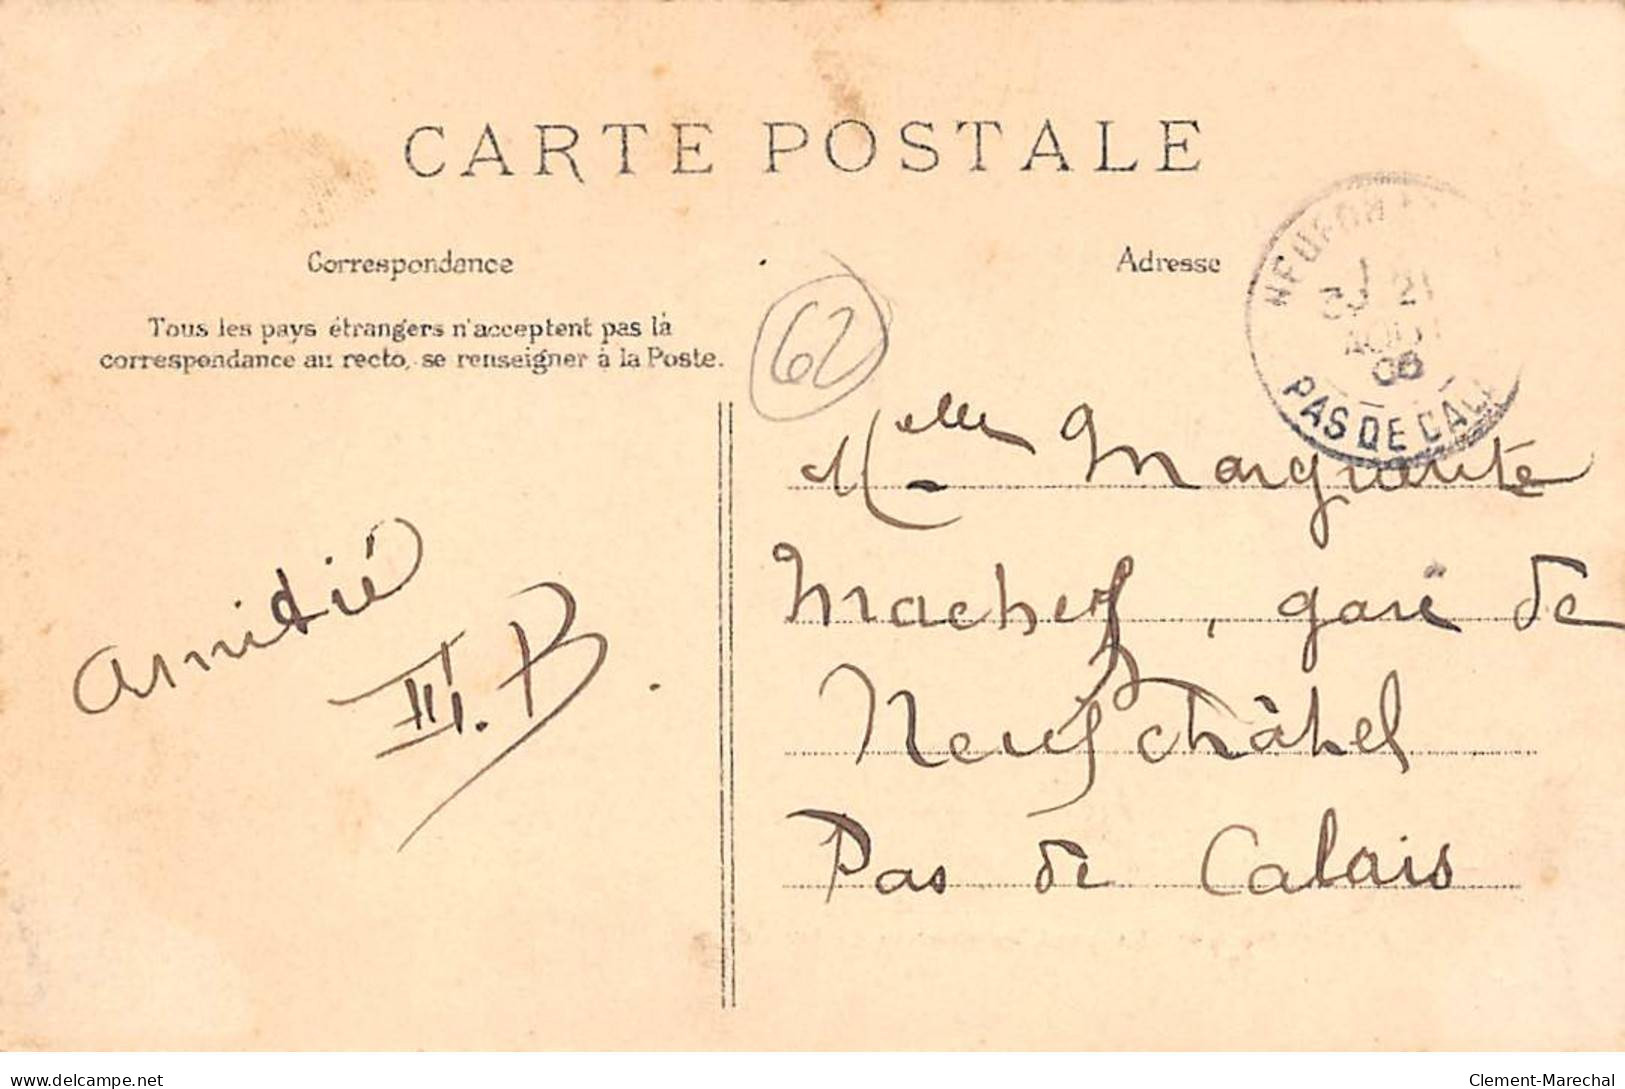 CARTE POSTALE
Correspondance
Adresse
Tous les pays étrangers n'acceptent pas la
correspondance au recto, se renseigner à la Poste.
62
21
AOUT
06
PAS DE CAL
Melle Marguerite
Machez, gare de
Neufchâtel
Pas de Calais
Amitié
B
delcampe.net
Clement-Marechal